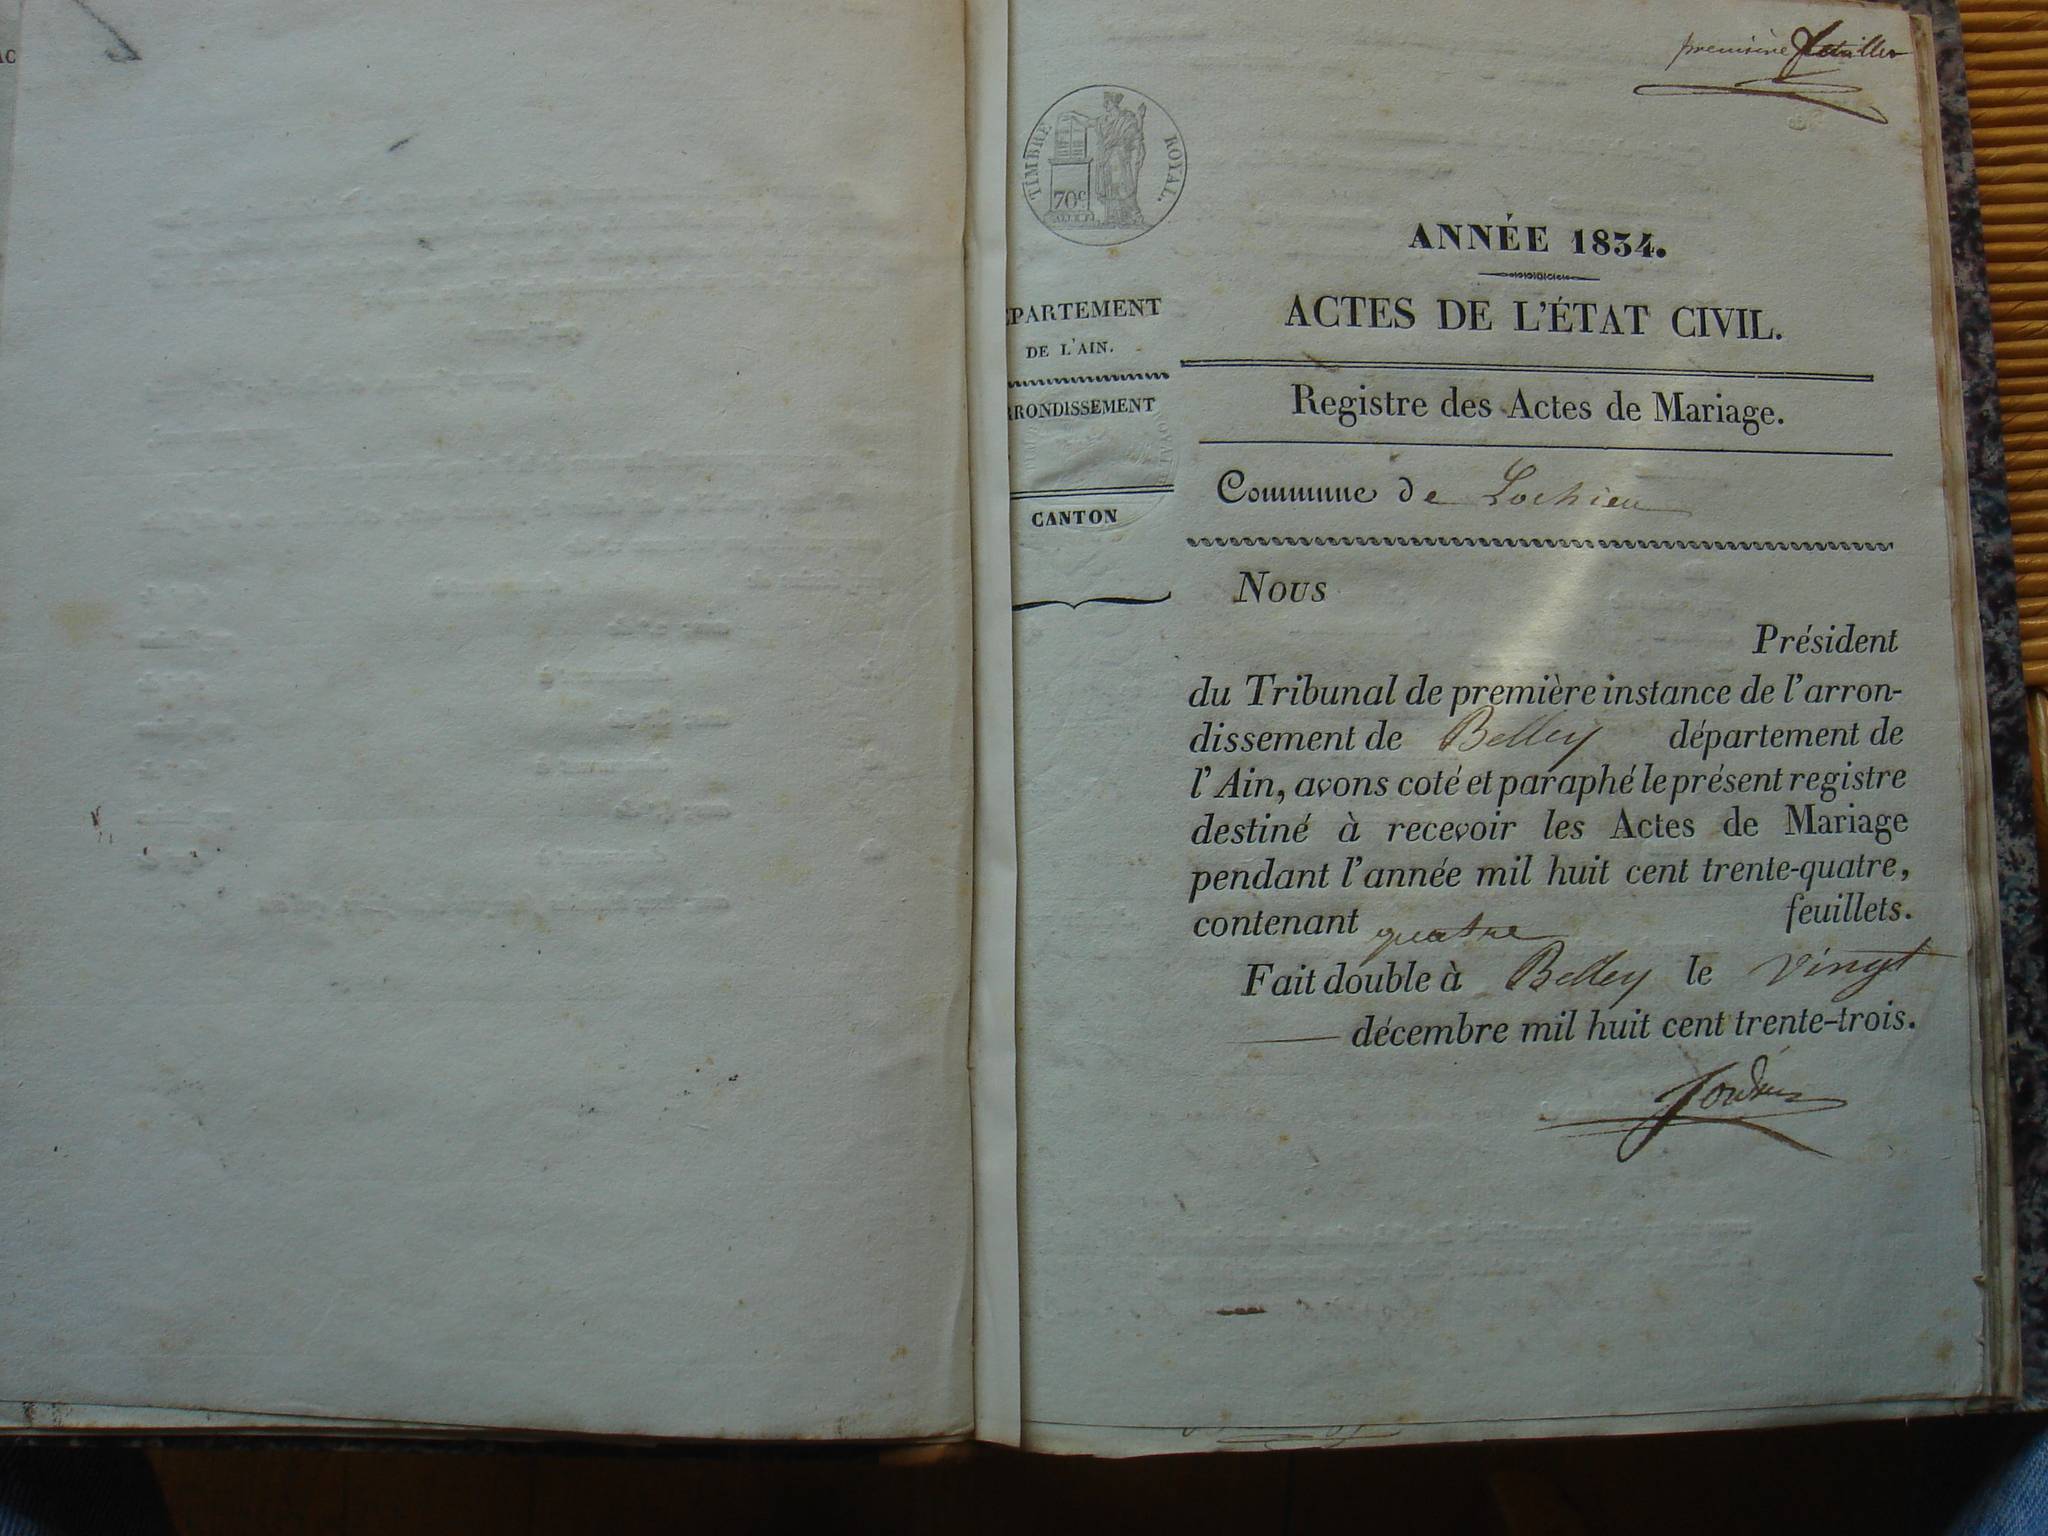 AC
première feuillet
TIMBRE ROYAL.
70c
ANNÉE 1834.
ACTES DE L'ÉTAT CIVIL.
EPARTEMENT
DE L'AIN.
RRONDISSEMENT
CANTON
Registre des Actes de Mariage.
Commune de Lochieu
Nous
Président
du Tribunal de première instance de l'arron-
dissement de Belley département de
l'Ain, avons coté et paraphé le présent registre
destiné à recevoir les Actes de Mariage
pendant l'année mil huit cent trente-quatre,
contenant quatre feuillets.
Fait double à Belley le vingt
décembre mil huit cent trente-trois.